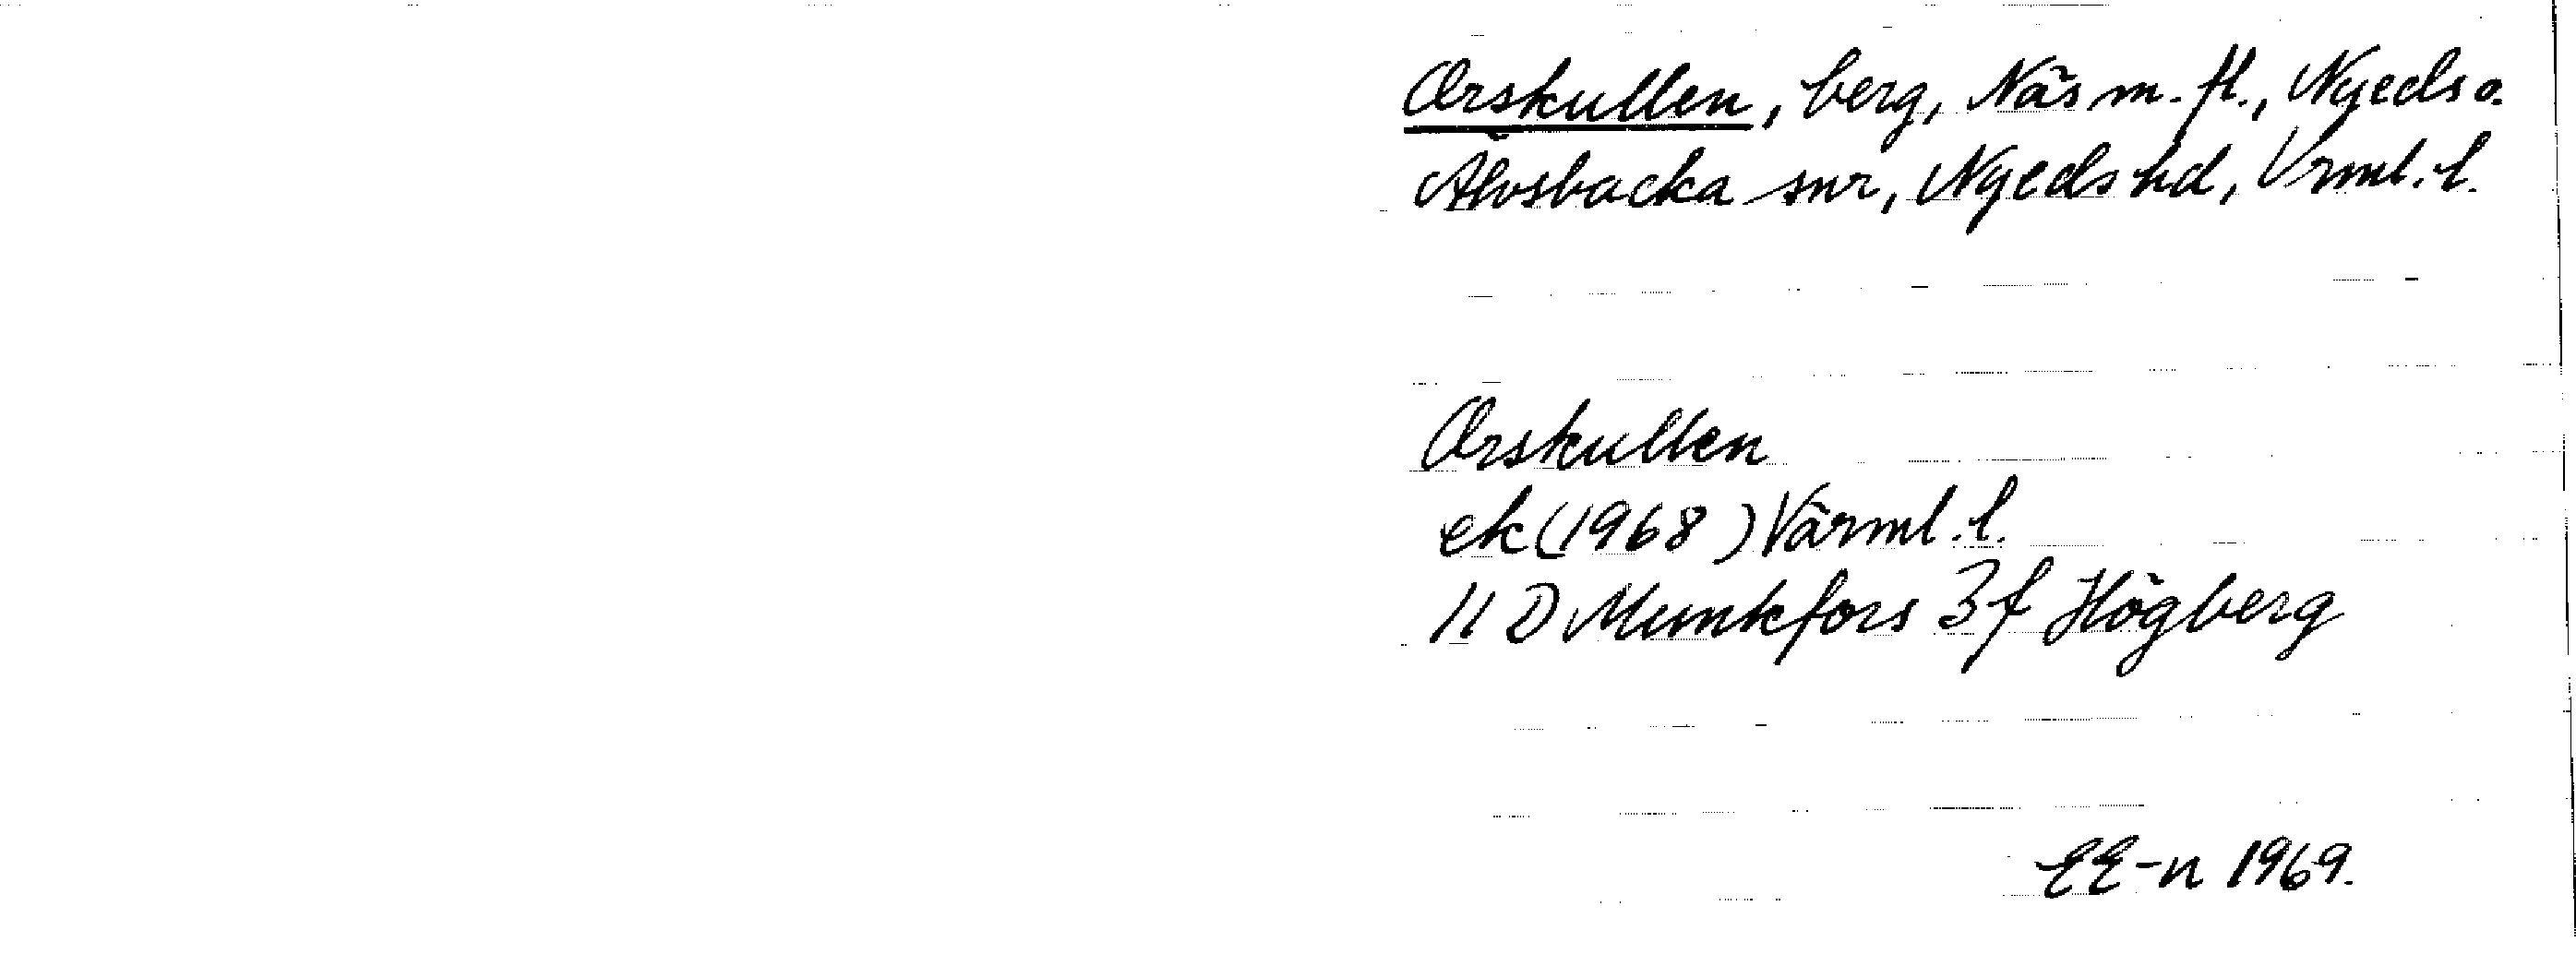 Orskullen, berg, Näs m. fl., Nyeds o.
Älvsbacka snr, Nyeds hd, Vrml. l.
Orskullen
ek (1968) Värml. l.
11 D Munkfors 3 f Högberg
EE-n 1969.